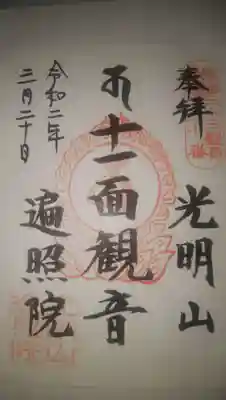 奉拝
光明山
十一面観音
遍照院
令和二年
三月二十日